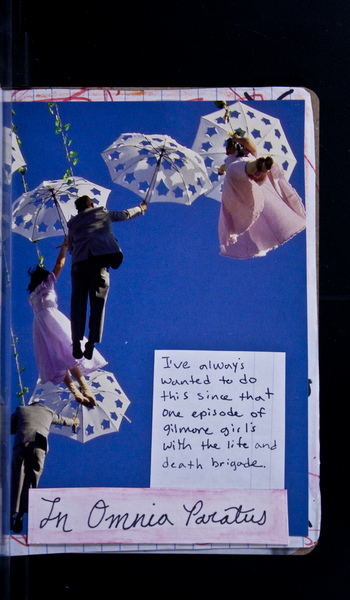 I've always
wanted to do
this since that
one episode of
gilmore girl's
with the life and
death brigade.
In Omnia Paratus